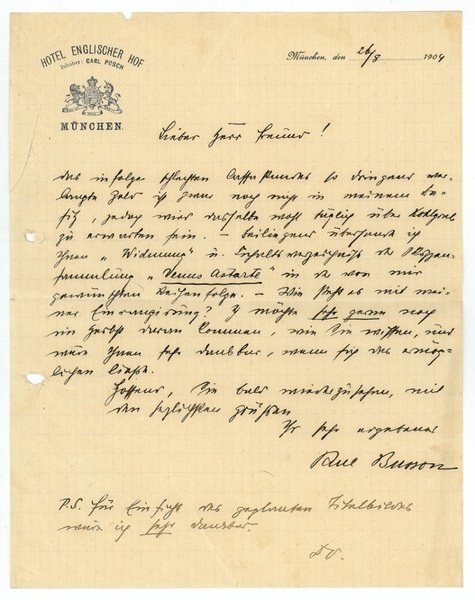 HOTEL ENGLISCHER HOF
Inhaber: CARL POSCH
MÜNCHEN.
München, den 26/8 1904
Lieber Herr Freund!
das infolge schlechten Cassastandes so dringend ver-
langte Geld ist zwar noch nicht in meinem Be-
sitz, jedoch wird dasselbe wohl täglich über
zu erwarten sein. – Beiliegend übersende ich
Ihnen „Widmung" u. Inhaltsverzeichniß der Skizzen-
sammlung „Venus Astarte" in der von mir
gewünschten Reihenfolge. – Wie steht es mit mei-
ner Einrangirung? Ich möchte sehr gerne noch
im Herbst daran kommen, wie Sie wissen, und
wäre Ihnen sehr dankbar, wenn sich das ermög-
lichen ließe.
Hoffend, Sie bald wiederzusehen, mit
den herzlichsten Grüßen
Ihr sehr ergebener
Paul Busson
P.S. Für Einsicht des geplanten Titelbildes
wäre ich sehr dankbar.